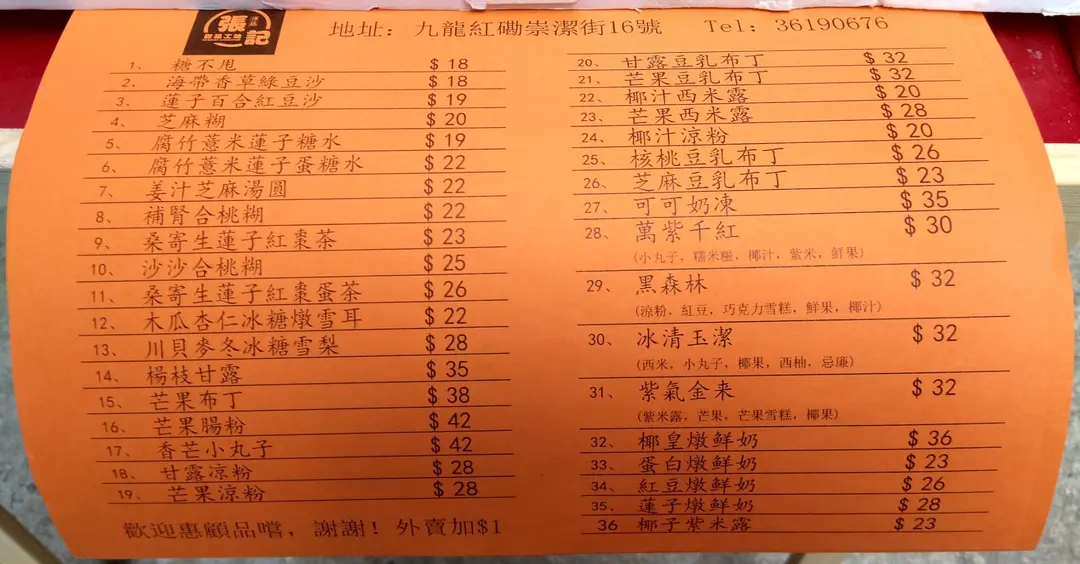 張記
甜品工坊
地址：九龍紅磡崇潔街16號 Tel：36190676
1、 糖不甩 $18
2、 海帶香草綠豆沙 $18
3、 蓮子百合紅豆沙 $19
4、 芝麻糊 $20
5、 腐竹薏米蓮子糖水 $19
6、 腐竹薏米蓮子蛋糖水 $22
7、 姜汁芝麻湯圓 $22
8、 補腎合桃糊 $22
9、 桑寄生蓮子紅棗茶 $23
10、 沙沙合桃糊 $25
11、 桑寄生蓮子紅棗蛋茶 $26
12、 木瓜杏仁冰糖燉雪耳 $22
13、 川貝麥冬冰糖雪梨 $28
14、 楊枝甘露 $35
15、 芒果布丁 $38
16、 芒果腸粉 $42
17、 香芒小丸子 $42
18、 甘露凉粉 $28
19、 芒果凉粉 $28
歡迎惠顧品嚐，謝謝！外賣加$1
20、 甘露豆乳布丁 $32
21、 芒果豆乳布丁 $32
22、 椰汁西米露 $20
23、 芒果西米露 $28
24、 椰汁涼粉 $20
25、 核桃豆乳布丁 $26
26、 芝麻豆乳布丁 $23
27、 可可奶凍 $35
28、 萬紫千紅 $30
(小丸子，糯米糍，椰汁，紫米，鮮果)
29、 黑森林 $32
(涼粉，紅豆，巧克力雪糕，鮮果，椰汁)
30、 冰清玉潔 $32
(西米，小丸子，椰果，西柚，忌廉)
31、 紫氣金来 $32
(紫米露，芒果，芒果雪糕，椰果)
32、 椰皇燉鮮奶 $36
33、 蛋白燉鮮奶 $23
34、 紅豆燉鮮奶 $26
35、 蓮子燉鮮奶 $28
36 椰子紫米露 $23